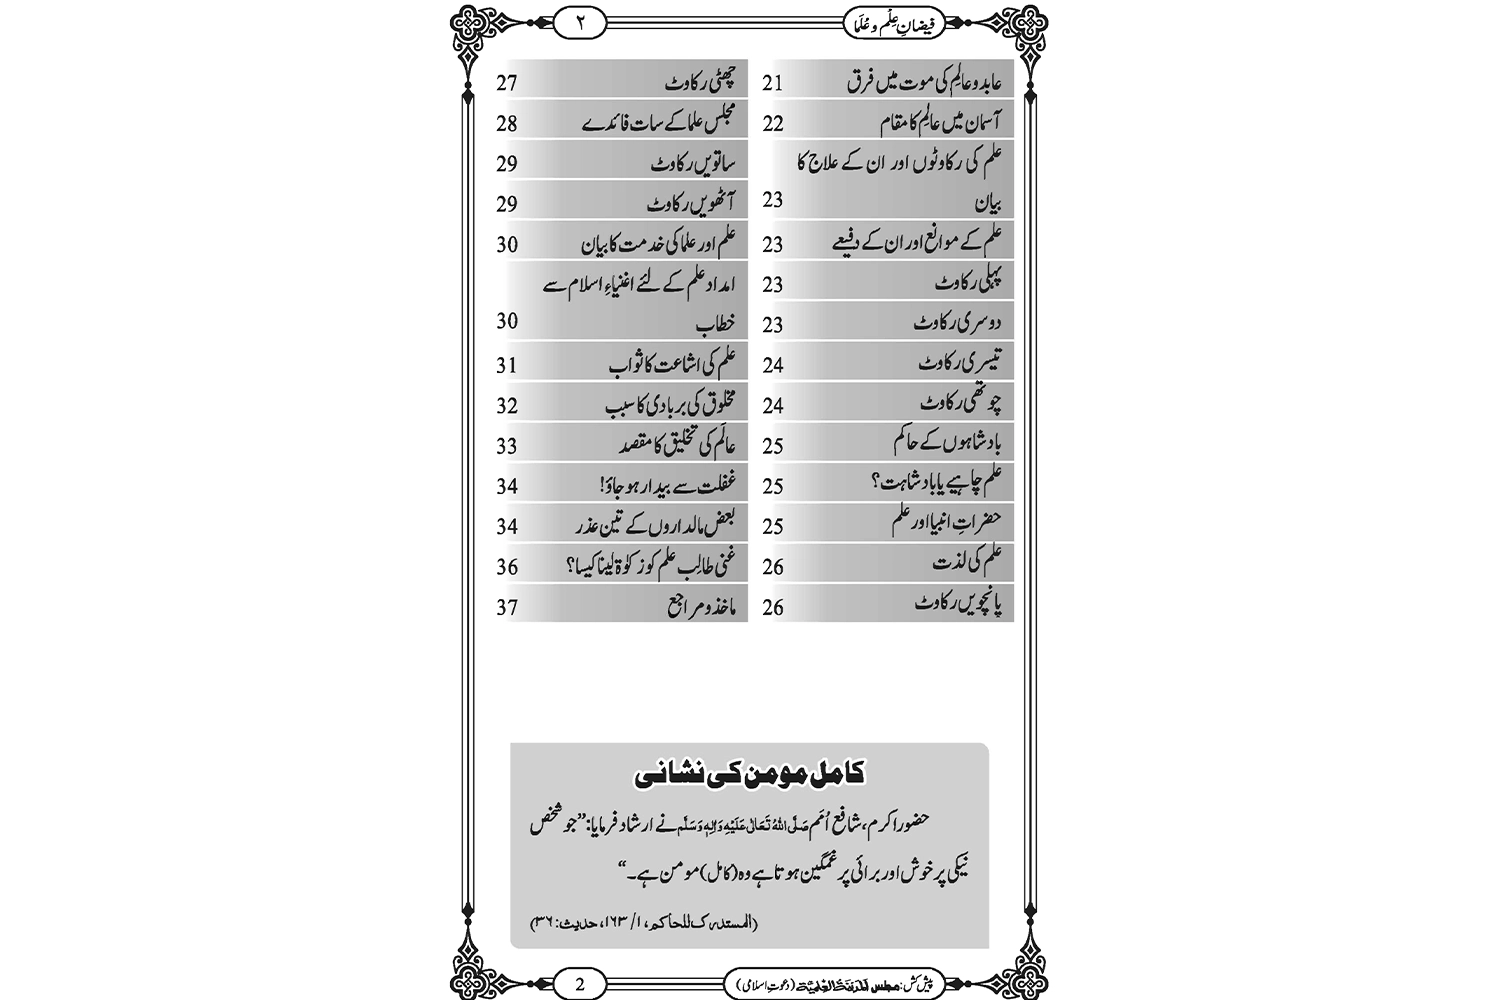 فیضانِ عِلْم و عُلَما
۲
عابد و عالِم کی موت میں فرق 21
آسمان میں عالِم کا مقام 22
علم کی رکاوٹوں اور ان کے علاج کا
بیان 23
علم کے موانع اور ان کے دفیعے 23
پہلی رکاوٹ 23
دوسری رکاوٹ 23
تیسری رکاوٹ 24
چوتھی رکاوٹ 24
بادشاہوں کے حاکم 25
علم چاہیے یا بادشاہت؟ 25
حضراتِ انبیا اور علم 25
علم کی لذت 26
پانچویں رکاوٹ 26
چھٹی رکاوٹ 27
مجلس علما کے سات فائدے 28
ساتویں رکاوٹ 29
آٹھویں رکاوٹ 29
علم اور علما کی خدمت کا بیان 30
امداد علم کے لئے اغنیاءِ اسلام سے
خطاب 30
علم کی اشاعت کا ثواب 31
مخلوق کی بربادی کا سبب 32
عالَم کی تخلیق کا مقصد 33
غفلت سے بیدار ہو جاؤ! 34
بعض مالداروں کے تین عذر 34
غنی طالِب علم کو زکوٰۃ لینا کیسا؟ 36
ماخذ و مراجع 37
کامل مومن کی نشانی
حضور اکرم، شافع اُمَم صَلَّی اللہُ تَعَالٰی عَلَیْہِ وَاٰلِہٖ وَسَلَّم نے ارشاد فرمایا: ”جو شخص
نیکی پر خوش اور برائی پر غمگین ہوتا ہے وہ (کامل) مومن ہے۔“
(المستدرک للحاکم، ۱/ ۱۶۳، حدیث: ۳۶)
پیش کش: مجلس المدینۃ العلمیۃ (دعوتِ اسلامی)
2